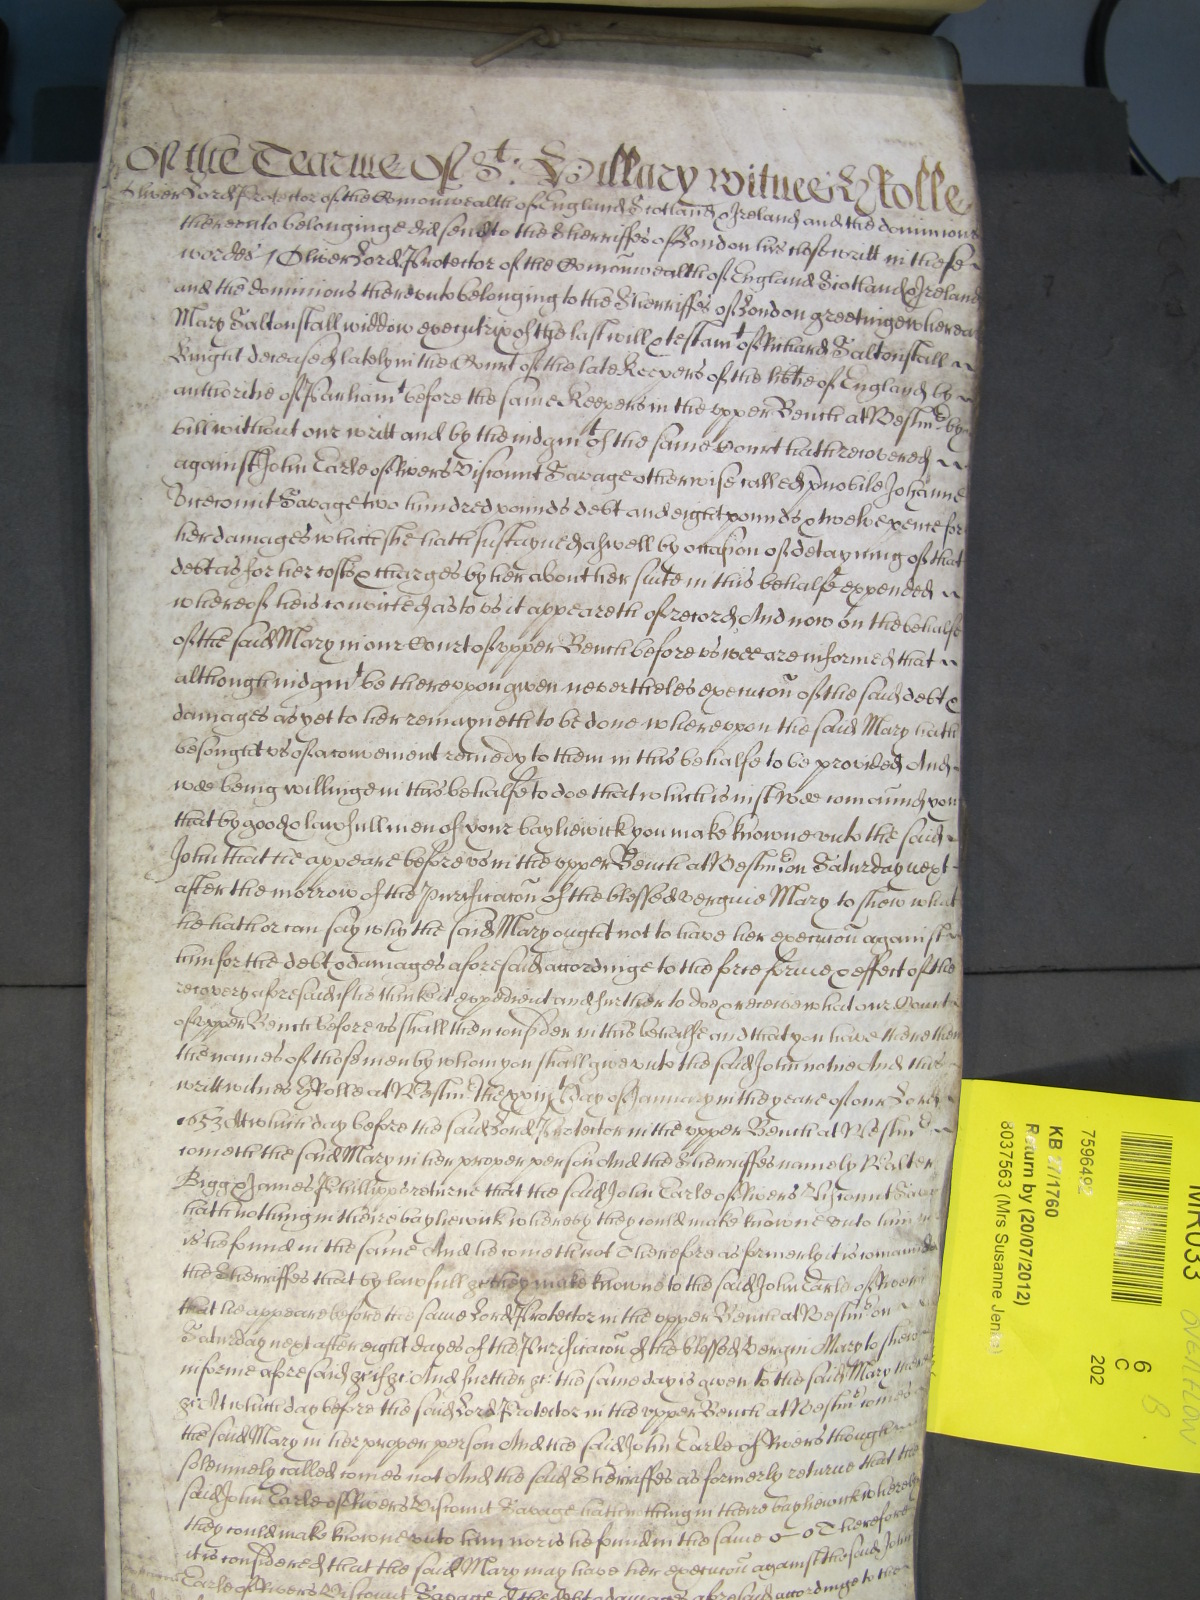 Of the Tearme Of St: Hillary Witnes H Rolle
Oliver Lord Protector of the Comonwealth of England Scotland & Ireland and the dominions
thereunto belonginge did send to the Sherriffes of London his close writt in these
wordes / Oliver Lord Protector of the Comonwealth of England Scotland & Ireland
and the dominions thereunto belonging to the Sherriffes of London greetinge whereas
Mary Saltonstall widdow executrix of the last will & testamt of Richard Saltonstall
Knight deceased lately in the Court of the late Keepers of the libtie of England by
authoritie of Parliamt before the same Keepers in the upper Bench at Westmr by
bill without our writt and by the iudgmt of the same Court hath recovered
against John Earle of Rivers Viscount Savage otherwise called Johanne
Vicecount Savage two hundred pounds debt and eight pounds & twelve pence for
her damages which she hath sustayned aswell by occasion of detayning of that
debt as for her costs & charges by her about her suite in this behalfe expended
whereof hee is convicted as to us it appeareth of record And now on the behalfe
of the said Mary in our Court of upper Bench before us wee are informed that
although iudgmt be thereuppon given nevertheles execucon of the said debt &
damages as yet to her remayneth to be done whereuppon the said Mary hath
besought us of a convenient remedy to them in this behalfe to be provided And
wee being willinge in this behalfe to doe that which is iust Wee comaund you
that by good & lawfull men of your bayliewick you make knowne unto the said
John that he appeare before us in the upper Bench at Westmr on Saturday next
after the morrow of the Purificacon of the blessed vergine Mary to shew what
he hath or can say why the said Mary ought not to have her execucon against
him for the debt & damages aforesaid accordinge to the force forme & effect of the
recovery aforesaid if he thinke it expedient and further to doe & receive what our Court
of upper Bench before us shall then consider in this behalfe and that you have there then
the names of those men by whom you shall give unto the said John notice And this
writt witnes H Rolle at Westmr the day of January in the yeare of our Lord
1653 At which day before the said Lord Protector in the upper Bench at Westmr
cometh the said Mary in her proper person And the Sherriffes namely Walter
Bigg & James Phillipps returne that the said John Earle of Rivers Viscount Savage
hath nothing in theire bayliewick whereby they could make knowne unto him nor
is he found in the same And he cometh not Therefore as formerly it is comaunded
the Sherriffes that by lawfull &c they make knowne to the said John Earle of Rivers
that he appeare before the same Lord Protector in the upper Bench at Westmr on
Saturday next after eight dayes of the Purificacon of the blessed vergin Mary to shew
in forme aforesaid &c if &c And further &c the same day is given to the said Mary there
&c At which day before the said Lord Protector in the upper Bench at Westmr comes
the said Mary in her proper person And the said John Earle of Rivers though
solemnely called comes not And the said Sherriffes as formerly returne that the
said John Earle of Rivers Viscount Savage hath nothing in theire bayliewick whereby
they could make knowne unto him nor is he found in the same Therefore
it is considered that the said Mary may have her execucon against the said John
Earle of Rivers Viscount Savage of the debt & damages aforesaid accordinge to the
MR033
6
C
202
7596492
KB 27/1760
Return by (20/07/2012)
8037563 (Mrs Susanne Jen